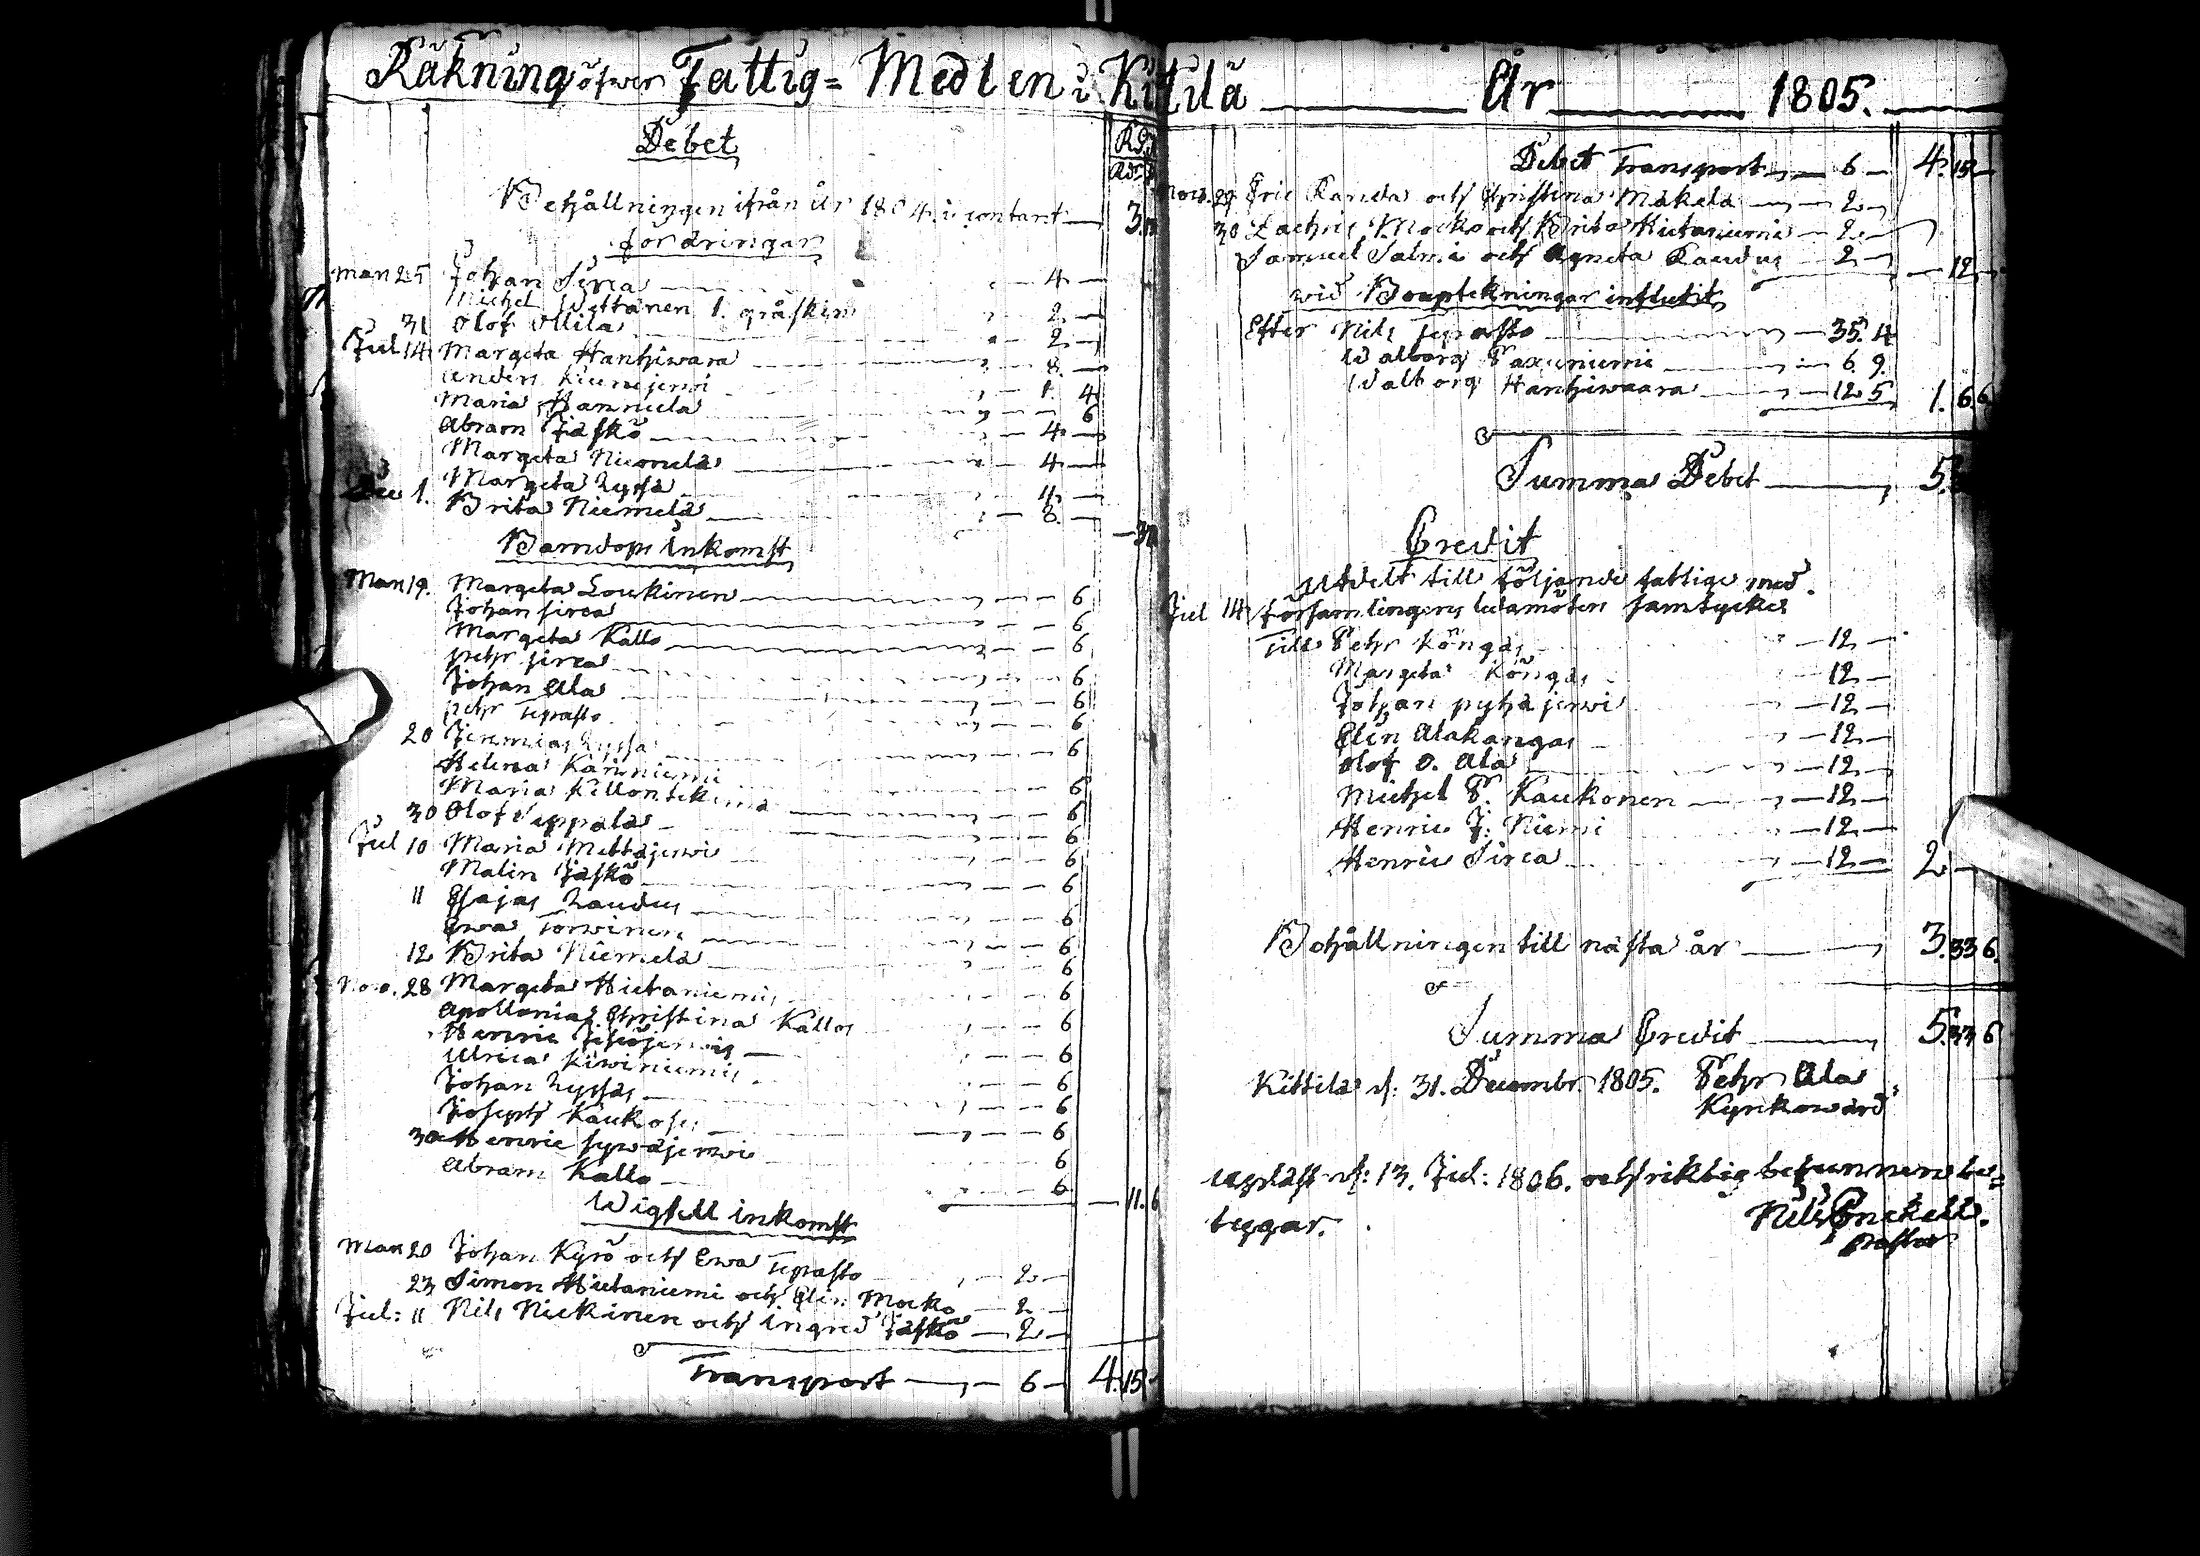 Räkning öfwer Fattig= Medlen i Kitilä År 1805.
Debet
Rd
Behållningen ifrån År 1804. i contant 3.
fordringar
Mars 25 Johan Sirca 4
Michel Wettanen 1. gråskin 2
31 Olof Ollila 2
Jul 14 Margeta Hanhiwara 8
Anders Kiurujerwi 1. 4
Maria Hannula 6
Abram Jäskö 4
Margeta Niemelä 4
Margeta Zyssä 4
Dec 1. Brita Niemelä 8
Barndops inkomst
Mars 19. Margeta Loukinen 6
Johan sirca 6
Margeta Kallo 6
pehr sirca 6
Johan Ala 6
pehr Tepasto 6
20 Jeremias Zyssä 6
Helena Käriniemi 6
Maria Killontekinä 6
30 Olof Seppälä 6
Jul 10 Maria Mettäjerwi 6
Malin Jäskö 6
11 Esajas Zaudus 6
Ewa Torwinen 6
12 Brita Niemelä 6
Nov. 28 Margeta Hietaniemi 6
Apollonia Christina Kallo 6
Henric Jesiöjerwi 6
Ulrica Kiwiniemi 6
Johan Zyssä 6
Joseph Kaukonen 6
30 Henric sywäjerwi 6
Abram Kallo 6
11. 6
Wigsell inkomst
Mars 20 Johan Kyrö och Ewa Tepasto 2
23 Simon Hietaniemi och Elin Mocko 2
Jul: 11 Nils Nickinen och ingred Jäskö 2
Transport 6 4. 15
Debet Transport 6 4. 15
Nov. 29 Eric Randa och Christina Mäkelä 2
30 Zachris Mocko och Brita Hietaniemi 2
Samuel Salmi och Agneta Raudus 2
12
wid Bouptekningar influtit
Efter Nils Tepasto 35. 4
Walborg Paxuniemi 6. 9.
Walborg Hanhiwaara 12 5 1. 6. 6
Summa Debet 5.
Credit
Utdelt till följande fattige med
Jul 14 församlingens ledamöters samtycke
Till Pehr Köngäs 12
Margeta Köngäs 12
Johan pyhäjerwi 12
Elin Alakangas 12
Olof O. Ala 12
Michel P. Kaukonen 12
Henric J. Niemi 12
Henric Sirca 12 2
Behållningen till nästa år 3. 33 6.
Summa Credit 5. 33 6
Kittilä d: 31. Decembr. 1805. Pehr Ala
Kyrkowärd
Upläst d: 13. Jul: 1806. och riktig befunnen be=
tygar. Nils Enckell.
Pastor